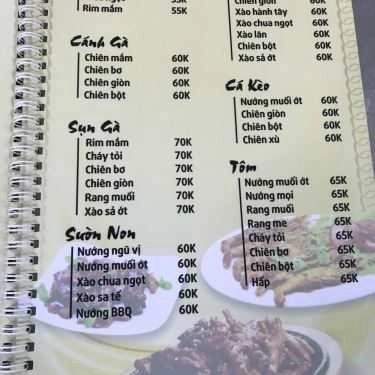 Rim mắm 55K
Cánh Gà
Chiên mắm 60K
Chiên bơ 60K
Chiên giòn 60K
Chiên bột 60K
Sụn Gà
Rim mắm 70K
Cháy tỏi 70K
Chiên bơ 70K
Chiên giòn 70K
Rang muối 70K
Xào sả ớt 70K
Sườn Non
Nướng ngũ vị 60K
Nướng muối ớt 60K
Xào chua ngọt 60K
Xào sa tế 60K
Nướng BBQ 60K
Chiên giòn 60K
Xào hành tây 60K
Xào chua ngọt 60K
Xào lăn 60K
Chiên bột 60K
Xào sả ớt 60K
Cá Kèo
Nướng muối ớt 60K
Chiên giòn 60K
Chiên bột 60K
Chiên xù 60K
Tôm
Nướng muối ớt 65K
Nướng mọi 65K
Rang muối 65K
Rang me 65K
Cháy tỏi 65K
Chiên bơ 65K
Chiên bột 65K
Hấp 65K